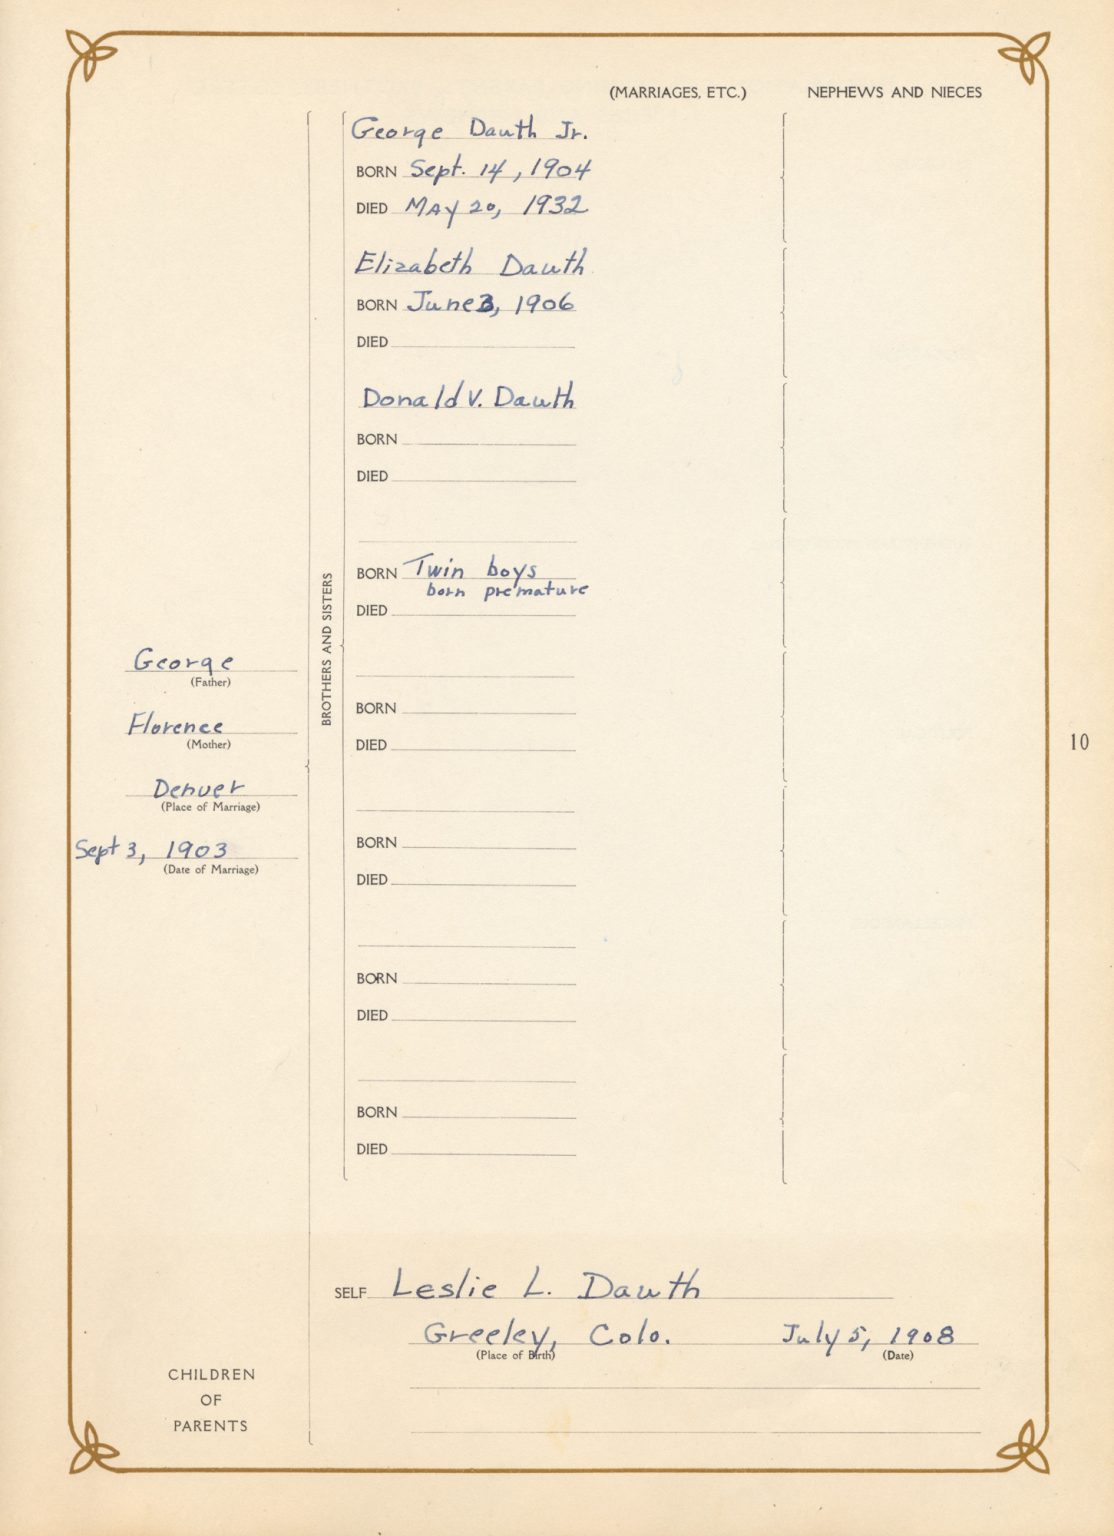 (MARRIAGES, ETC.) NEPHEWS AND NIECES
George Dauth Jr.
BORN Sept. 14, 1904
DIED MAy 20, 1932
Elizabeth Dauth
BORN June 3, 1906
DIED
Donald V. Dauth
BORN
DIED
BORN Twin boys
born premature
DIED
BORN
DIED
BORN
DIED
BORN
DIED
BORN
DIED
BROTHERS AND SISTERS
George
(Father)
Florence
(Mother)
Denver
(Place of Marriage)
Sept 3, 1903
(Date of Marriage)
10
SELF Leslie L. Dauth
Greeley, Colo. July 5, 1908
(Place of Birth) (Date)
CHILDREN
OF
PARENTS